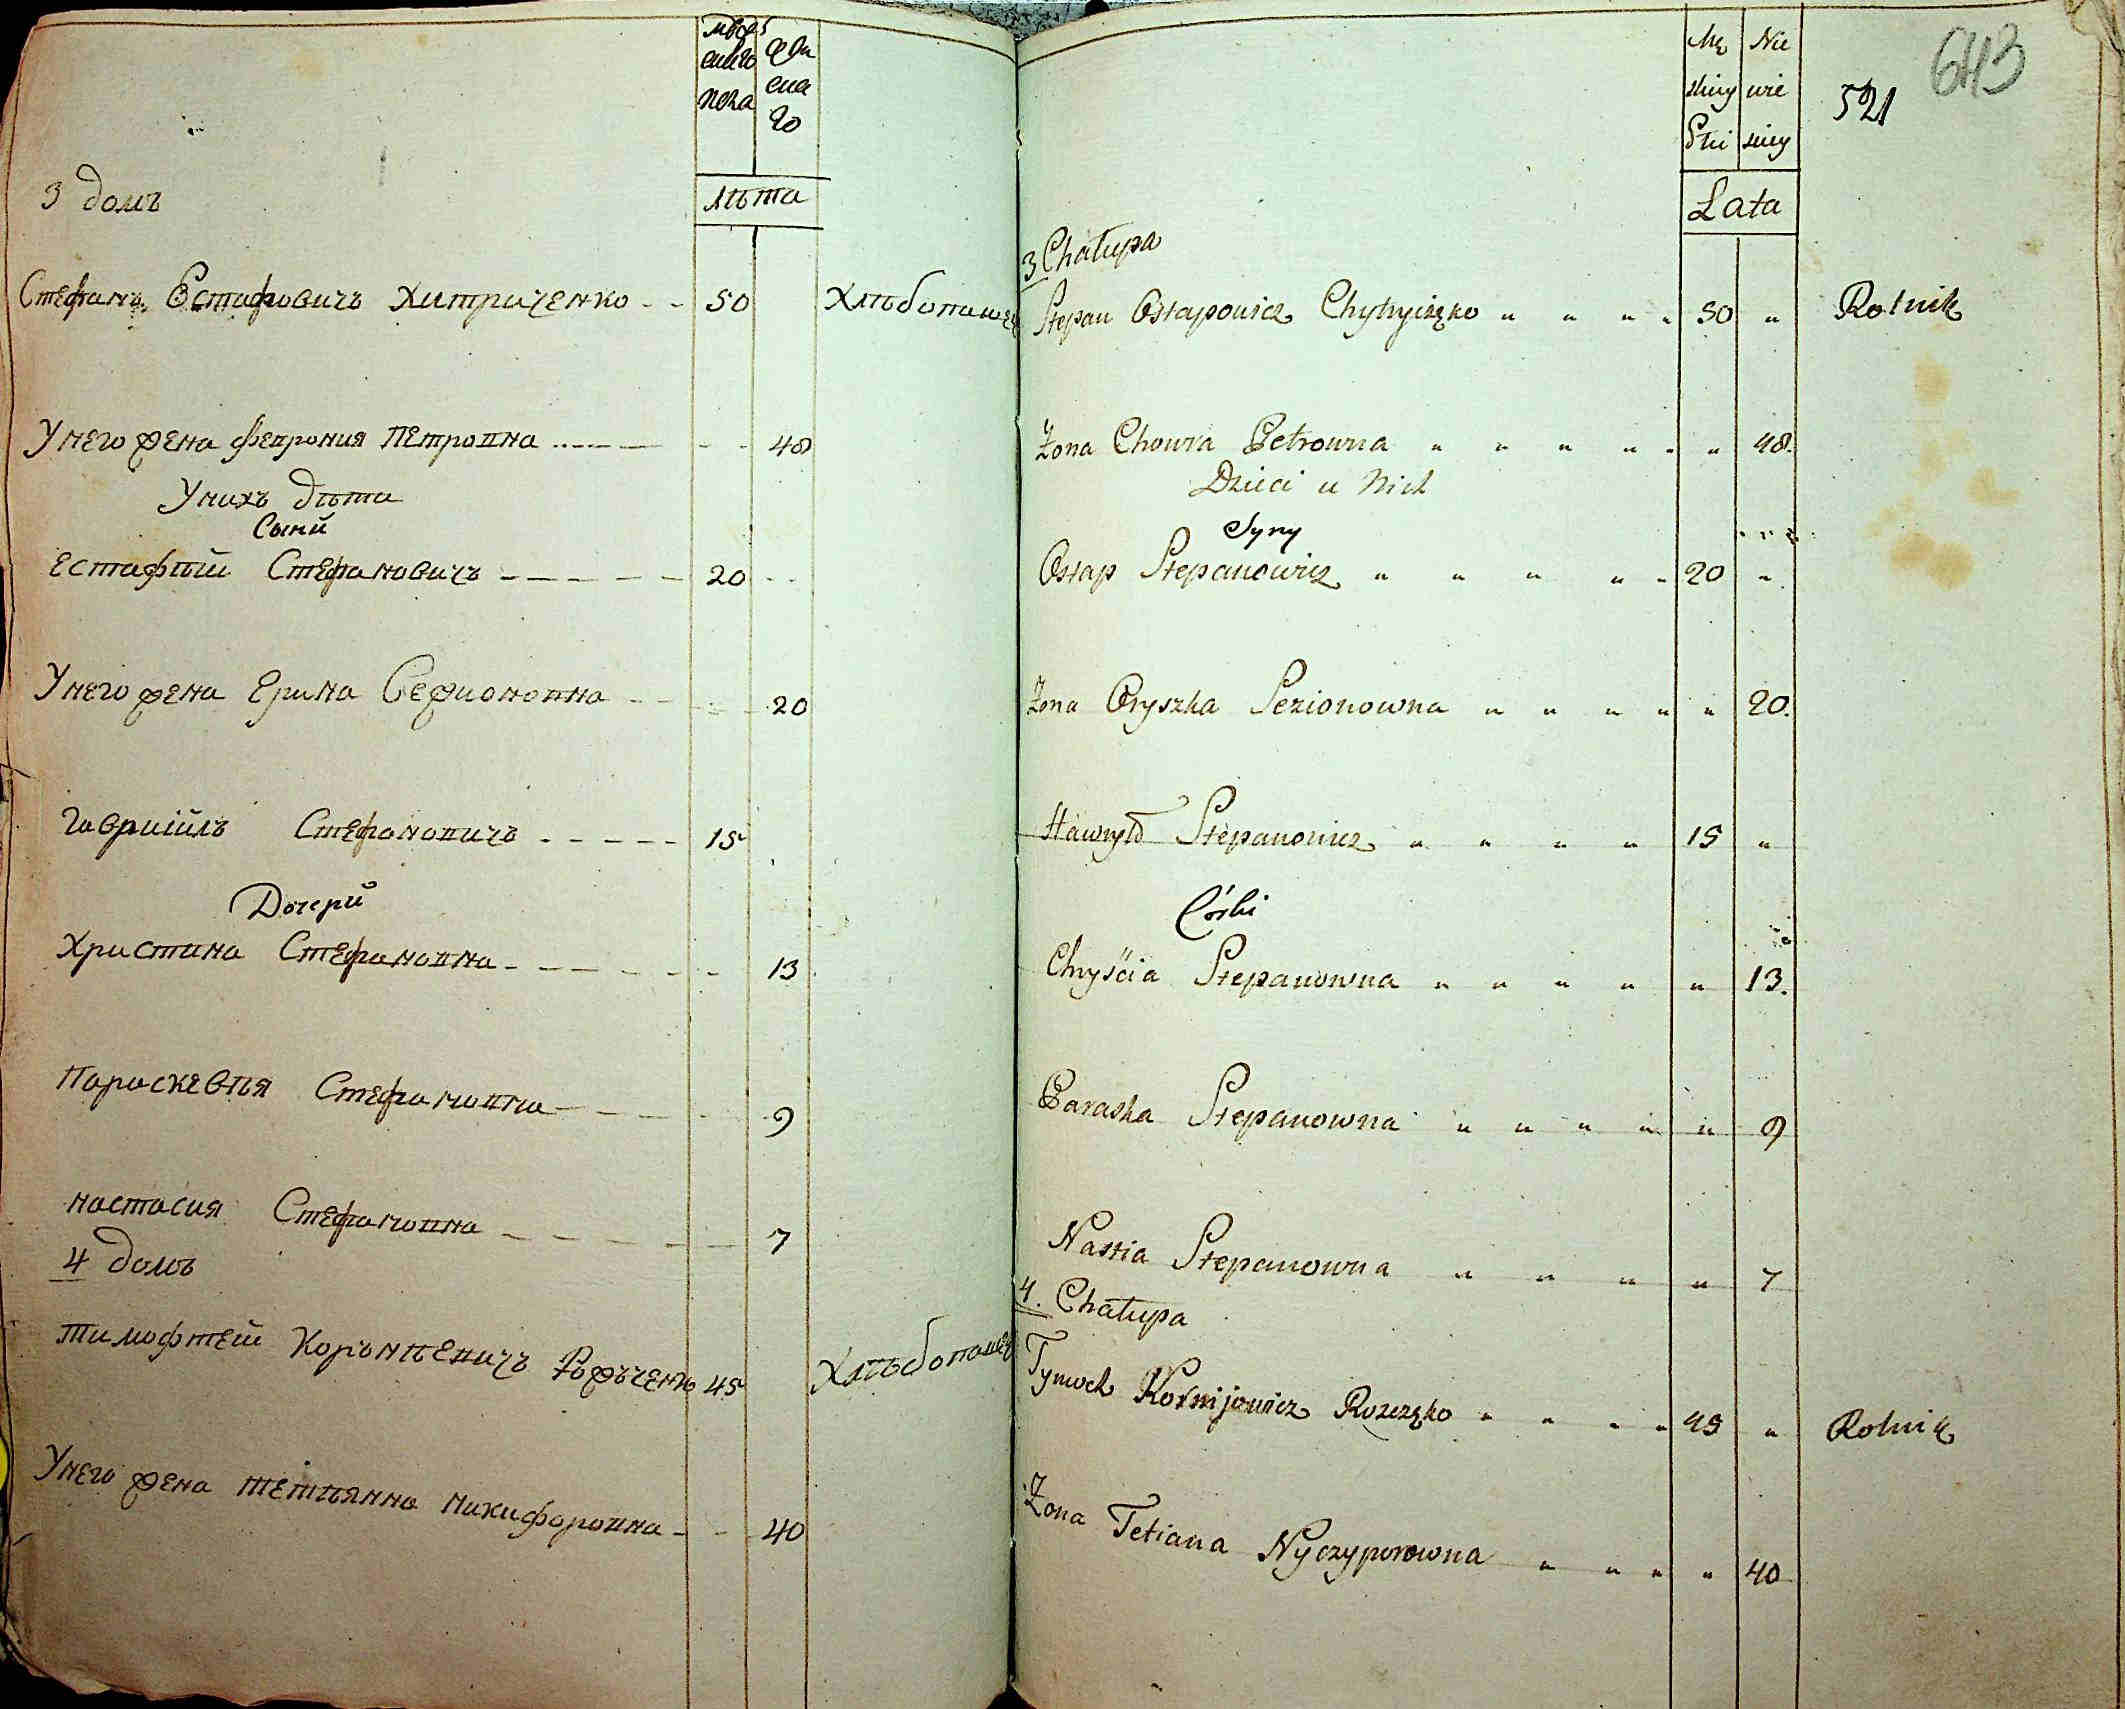 мужескаго пола
женскаго
лѣта
3 домъ
Стефанъ Естафовичъ Хитриченко 50 Хлѣбопашец
У него жена Феврония Петровна 48
У нихъ дѣти
Сыни
Естафѣй Стефановичъ 20
У него жена Ерина Сежионовна 20
Гавриилъ Стефановичъ 15
Дочери
Христина Стефановна 13
Параскевѣя Стефановна 9
Настасия Стефановна 7
4 домъ
Тимофтей Корънѣевичъ 45 Хлѣбопашец
У него жена Тетьянна Никифоровна 40
Męskiey Płci
Niewieściey
Lata
521
643
3 Chałupa
Stepan Ostapowicz Chytryczęko " " " " 50 " Rolnik
Żona Chowra Petrowna " " " " " " 48.
Dzieci u Nich
Syny
Ostap Stepanowicz " " " " " 20 "
Żona Oryszka Sezionowna " " " " " 20.
Hawryło Stepanowicz " " " " 15 "
Córki
Chryścia Stepanowna " " " " " 13.
Paraska Stepanowna " " " " " 9
Nastia Stepanowna " " " " 7
4. Chałupa
Tymoch Kornijowicz Rozczęko " " " " 45 " Rolnik
Żona Tetiana Nyczyporowna " " " " 40